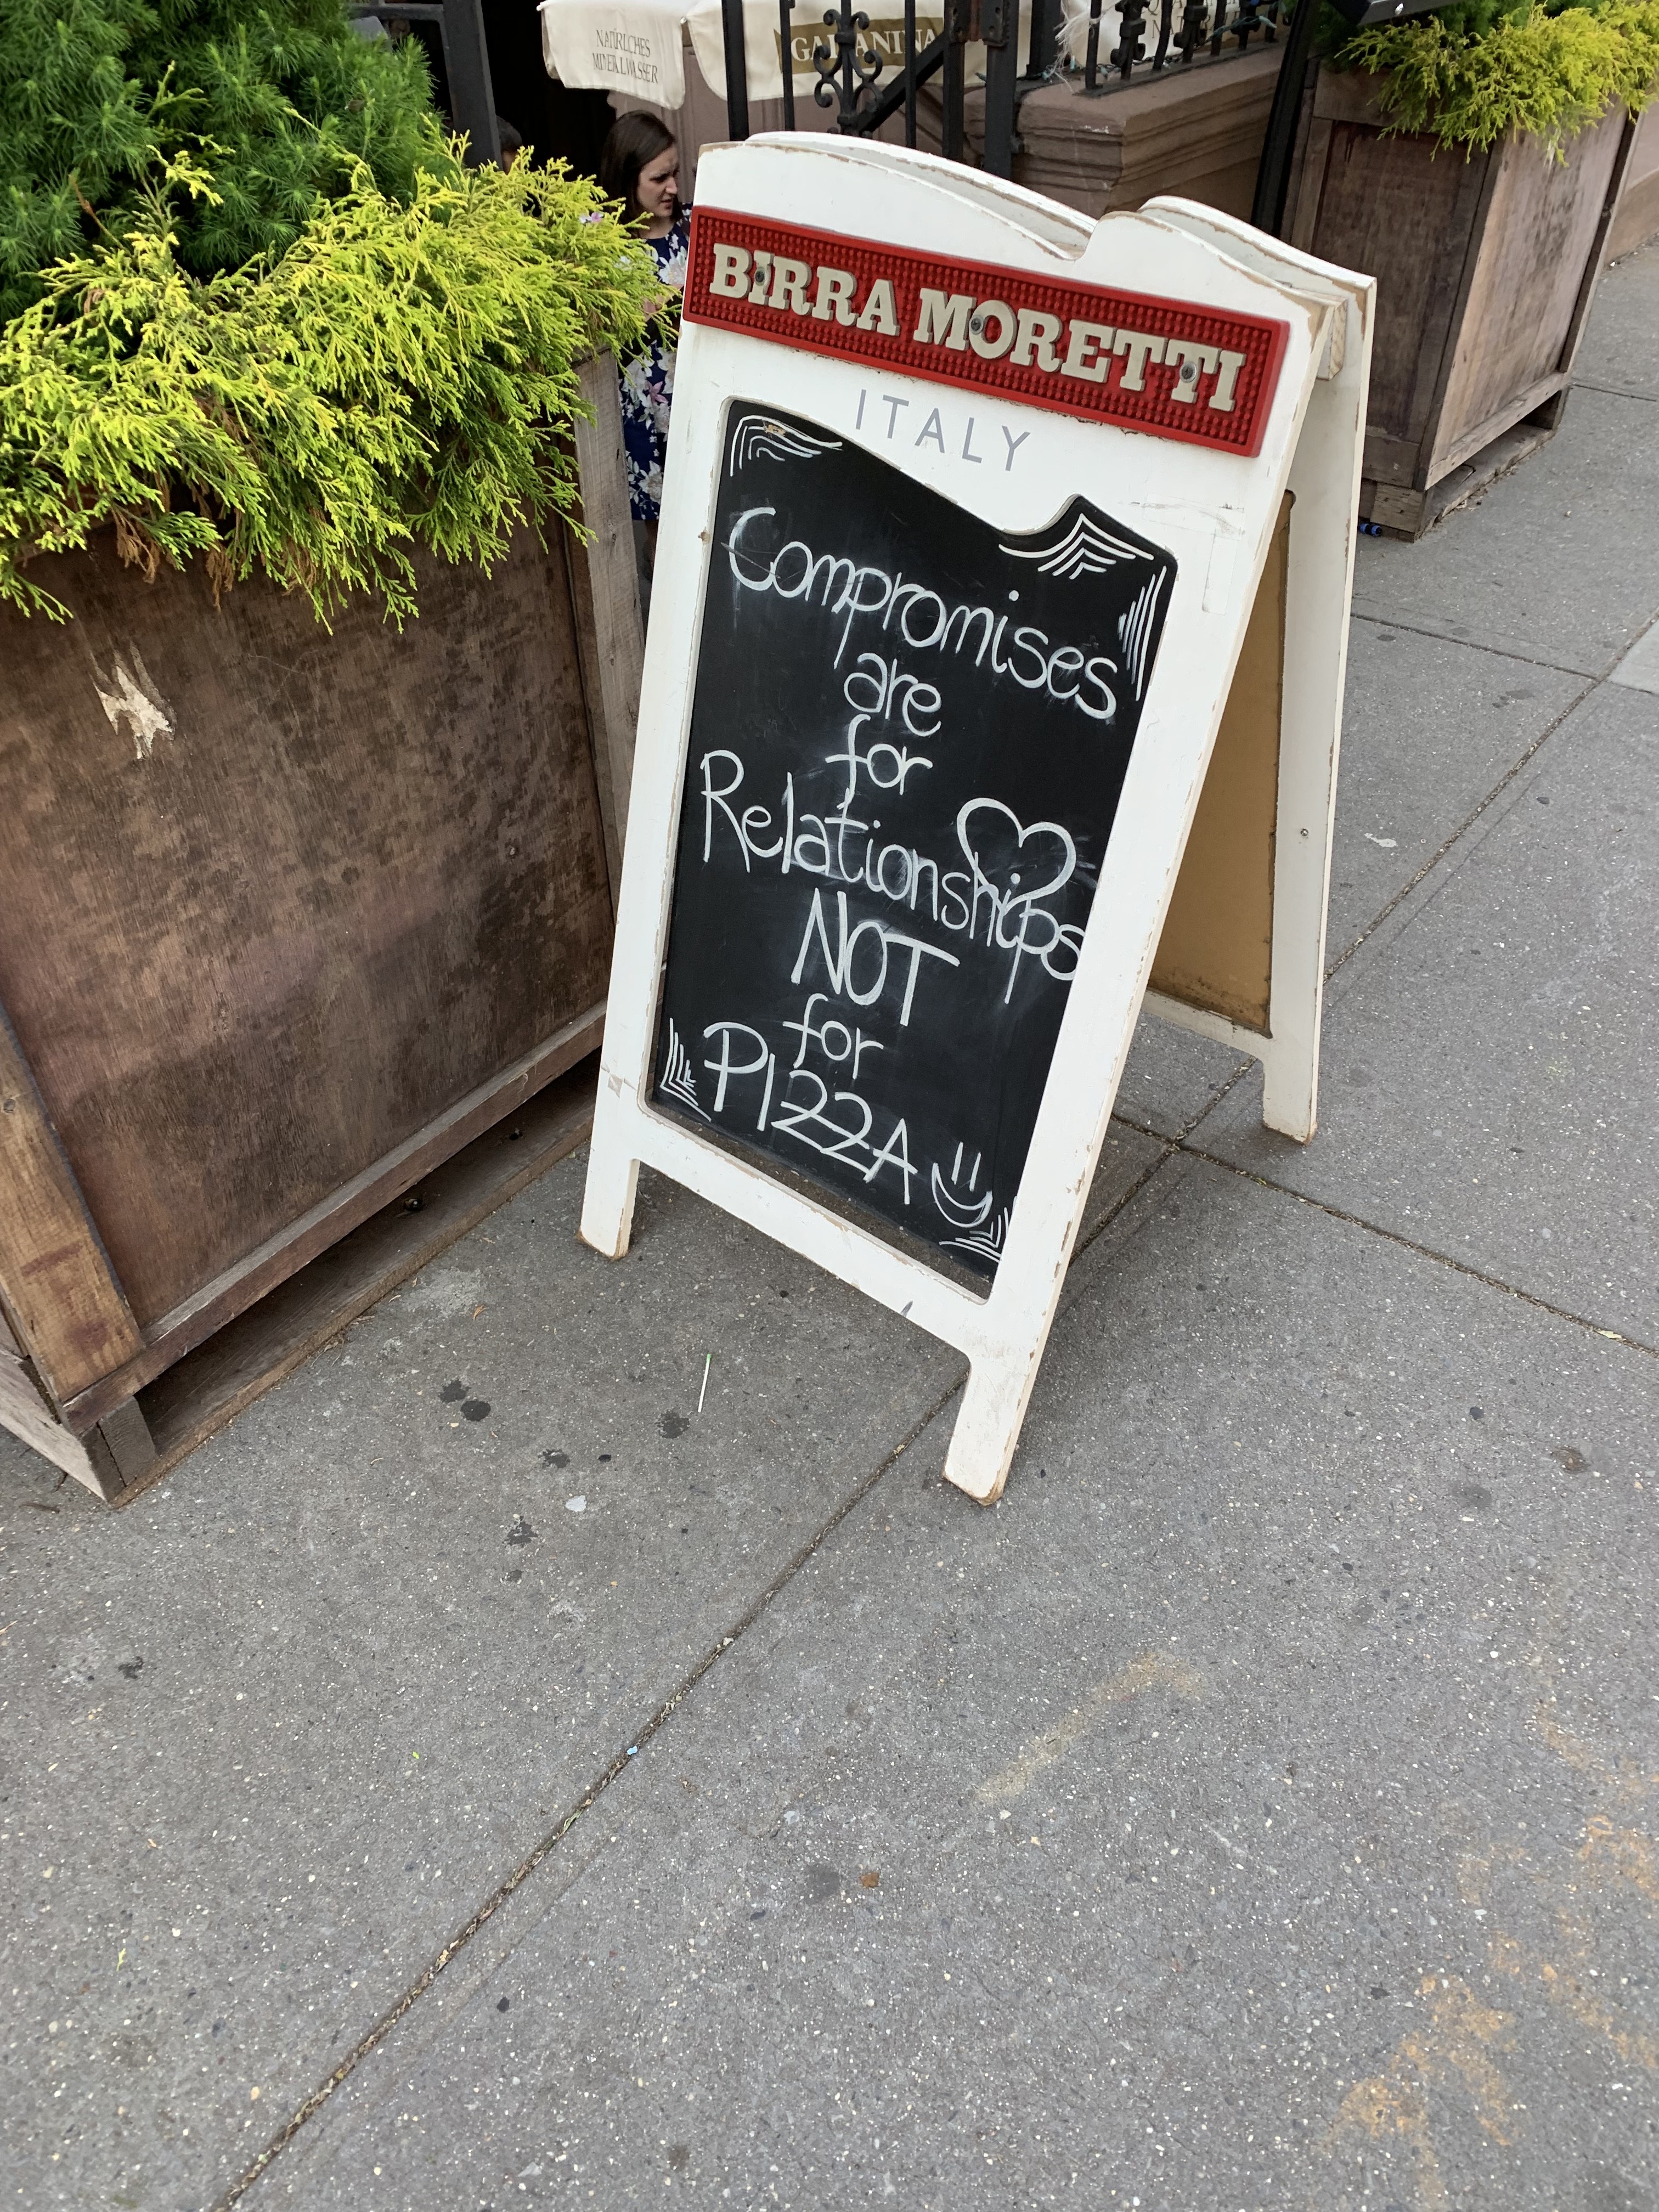 NATÜRLICHES
MINERALWASSER
GALVANINA
BIRRA MORETTI
ITALY
Compromises
are
for
Relationships
NOT
for
PIZZA